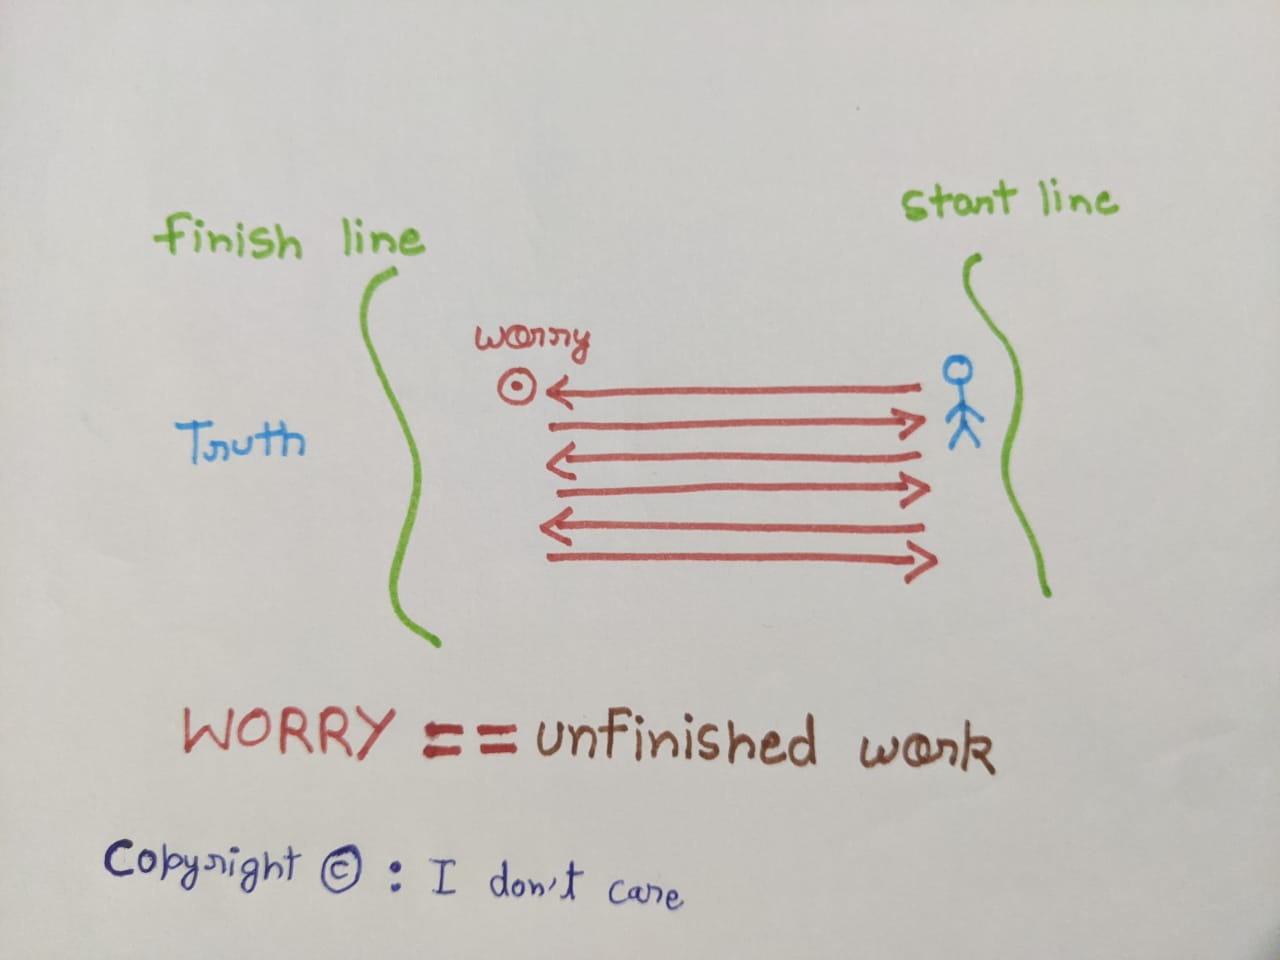 start line
finish line
worry
Truth
WORRY == unfinished work
Copyright © : I don't care